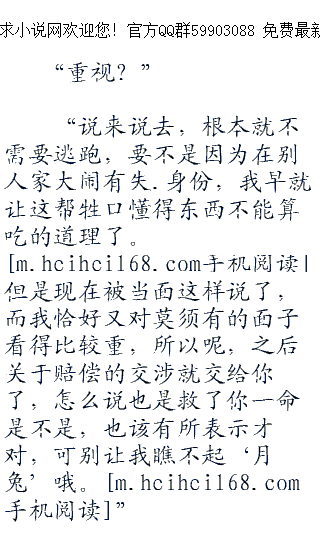 求小说网欢迎您! 官方QQ群59903088 免费最新
“重视？”
“说来说去，根本就不
需要逃跑，要不是因为在别
人家大闹有失.身份，我早就
让这帮牲口懂得东西不能算
吃的道理了。
[m.hcihci168.com手机阅读]
但是现在被当面这样说了，
而我恰好又对莫须有的面子
看得比较重，所以呢，之后
关于赔偿的交涉就交给你
了，怎么说也是救了你一命
是不是，也该有所表示才
对，可别让我瞧不起‘月
兔’哦。[m.hcihci168.com
手机阅读]”